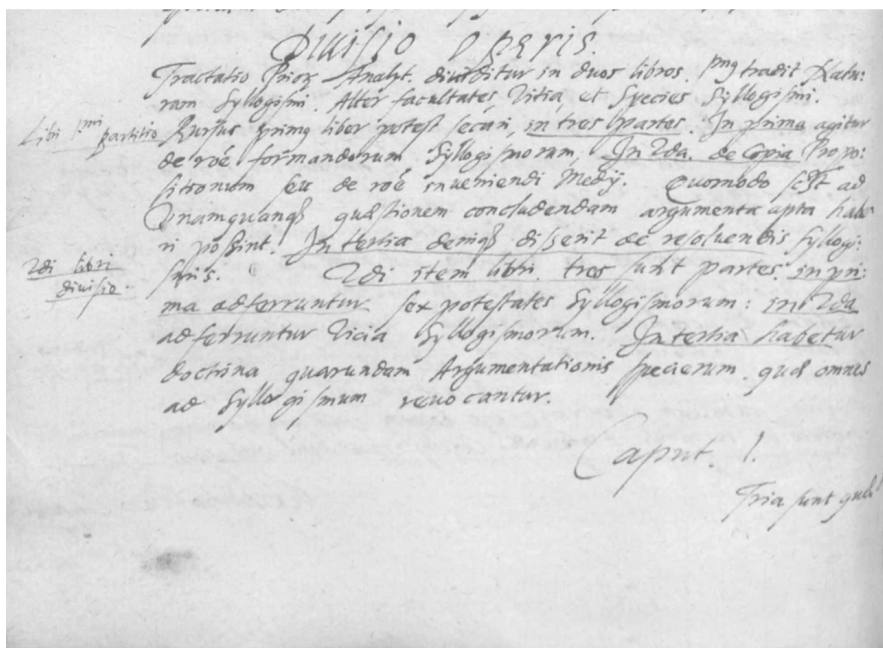 Divisio Operis.
Tractatio Prior₄ Analyt. dividitur in duos libros. pmꝰ tradit Natu:
ram Syllogismi. Alter facultates, Vitia, et Species Syllogismi.
Libi pmi Rursus primꝰ liber potest secari, in tres partes. In prima agitur
partitio
de roe formandorum Syllogismorum, In 2da. de Copia Propo:
sitionum seu de roe inveniendi Medij. Quomodo sc̃t ad
Unamquamqꝫ quæstionem concludendam argumenta apta habe
ri possint. In tertia deniqꝫ disserit de resolvendis Syllogi:
2di libri smis. 2di item libri, tres sunt partes. in pri:
divisio.
ma adferruntur sex potestates Syllogismorum: in 2da
adferruntur Vicia Syllogismorum. In tertia habetur
doctrina quarundam Argumentationis specierum. quæ omnes
ad Syllogismum revocantur.
Caput. 1.
Tria sunt